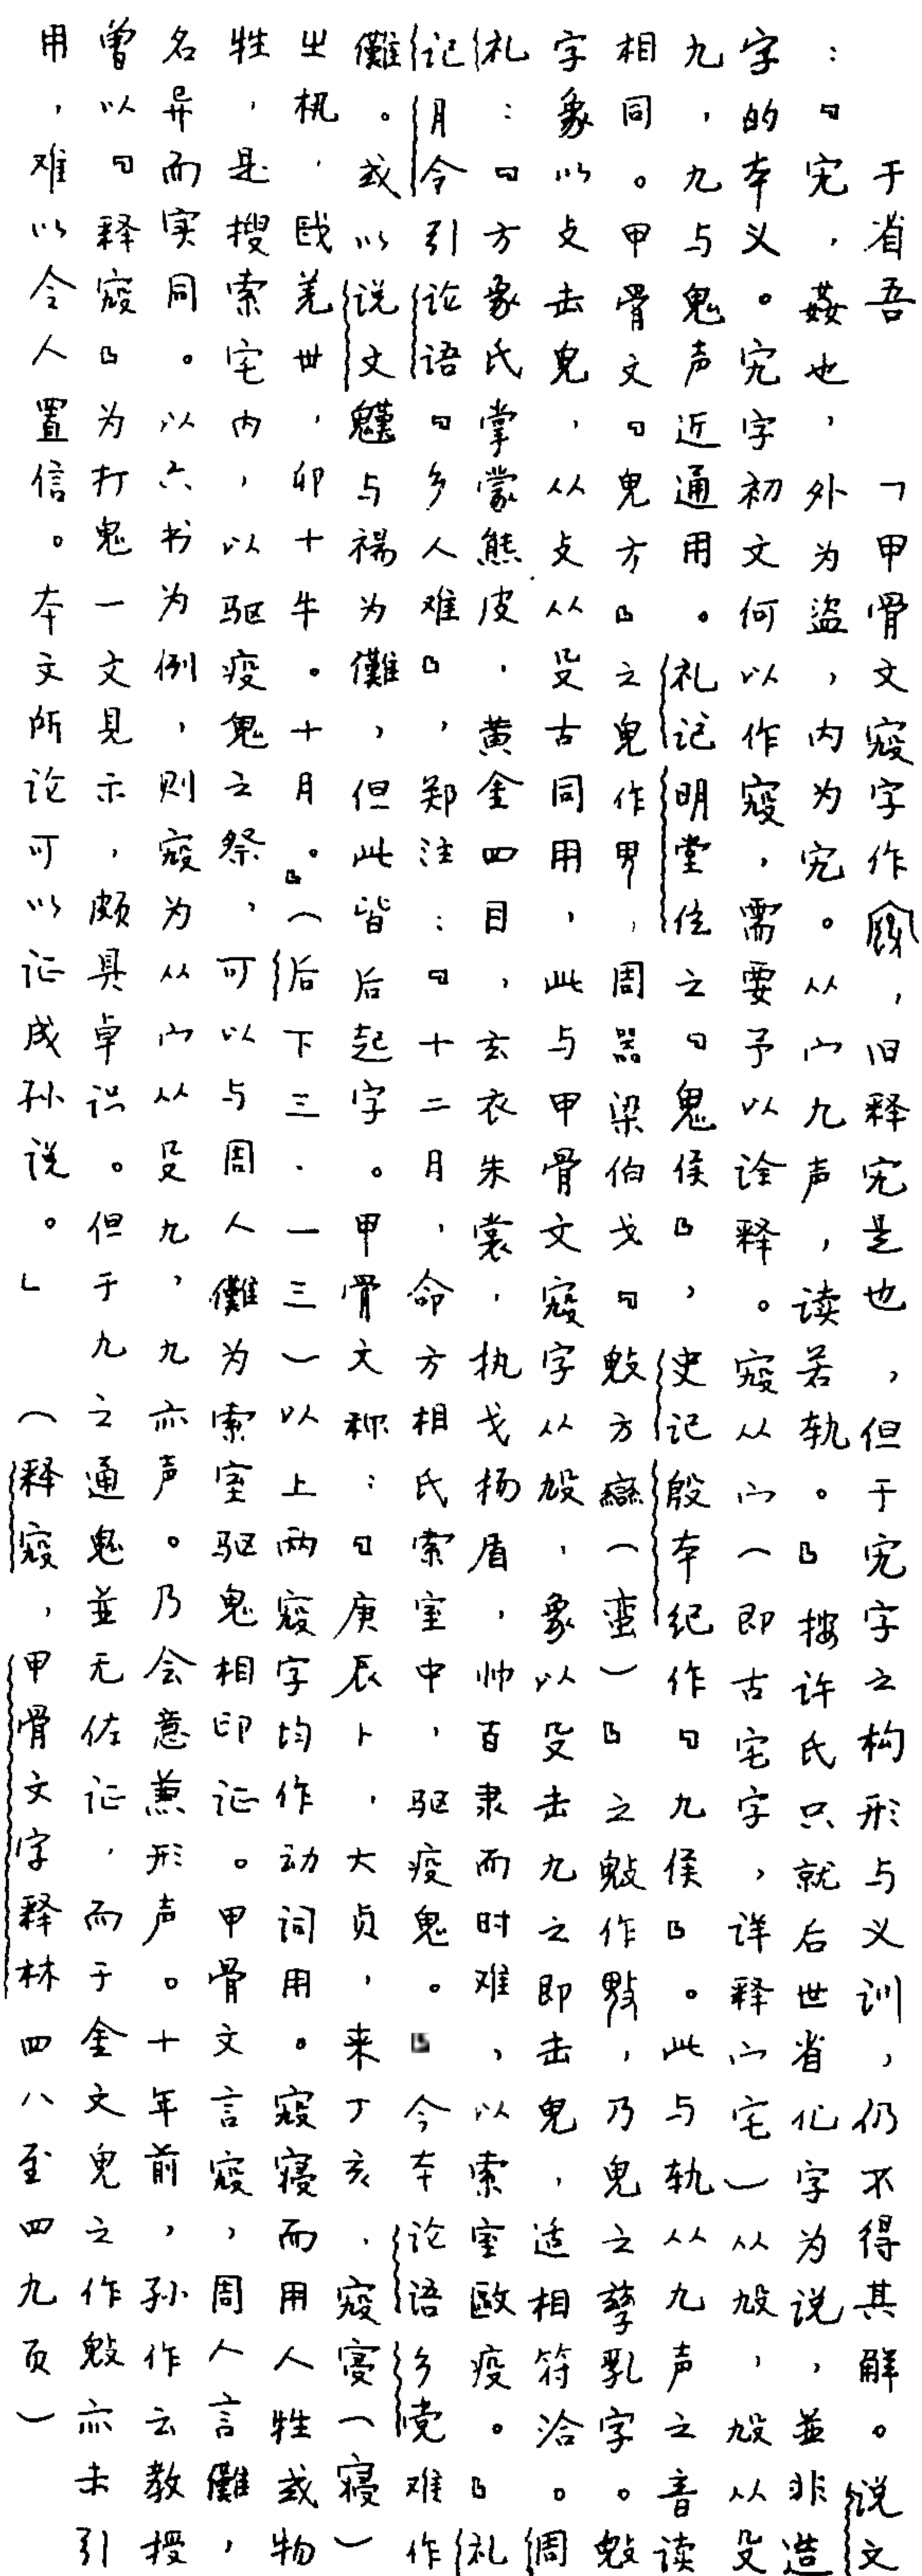 于省吾　「甲骨文⿱宀㲃字作，旧释宄是也，但于宄字之构形与义训，仍不得其解。说文
：『宄，姦也，外为盗，内为宄。从宀九声，读若轨。』按许氏只就后世省化字为说，並非造
字的本义。宄字初文何以作⿱宀㲃，需要予以诠释。⿱宀㲃从宀（即古宅字，详释宀宅）从㲃，㲃从殳
九，九与鬼声近通用。礼记明堂位之『鬼侯』，史记殷本纪作『九侯』。此与轨从九声之音读
相同。甲骨文『鬼方』之鬼作畀，周器梁伯戈『⿰鬼攴方蠻（蛮）』之⿰鬼攴作⿰畀攴，乃鬼之孳乳字。⿰鬼攴
字象以攴击鬼，从攴从殳古同用，此与甲骨文⿱宀㲃字从㲃，象以殳击九之即击鬼，适相符洽。周
礼：『方象氏掌蒙熊皮，黄金四目，玄衣朱裳，执戈扬盾，帅百隶而时难，以索室敺疫。』礼
记月令引论语『乡人难』，郑注：『十二月，命方相氏索室中，驱疫鬼。』今本论语乡党难作
儺。或以说文魌与禓为儺，但此皆后起字。甲骨文称：『庚辰卜，大贞，来丁亥，⿱宀㲃寝（寢）
㞢杋，戝羌卅，卯十牛。十月。』（后下三·一三）以上两⿱宀㲃字均作动词用。⿱宀㲃寝而用人牲或物
牲，是搜索宅内，以驱疫鬼之祭，可以与周人儺为索室驱鬼相印证。甲骨文言⿱宀㲃，周人言儺，
名异而实同。以六书为例，则⿱宀㲃为从宀从殳九，九亦声。乃会意兼形声。十年前，孙作云教授
曾以『释⿱宀㲃』为打鬼一文见示，颇具卓识。但于九之通鬼並无佐证，而于金文鬼之作⿰鬼攴亦未引
用，难以令人置信。本文所论可以证成孙说。」（释⿱宀㲃，甲骨文字释林四八至四九页）